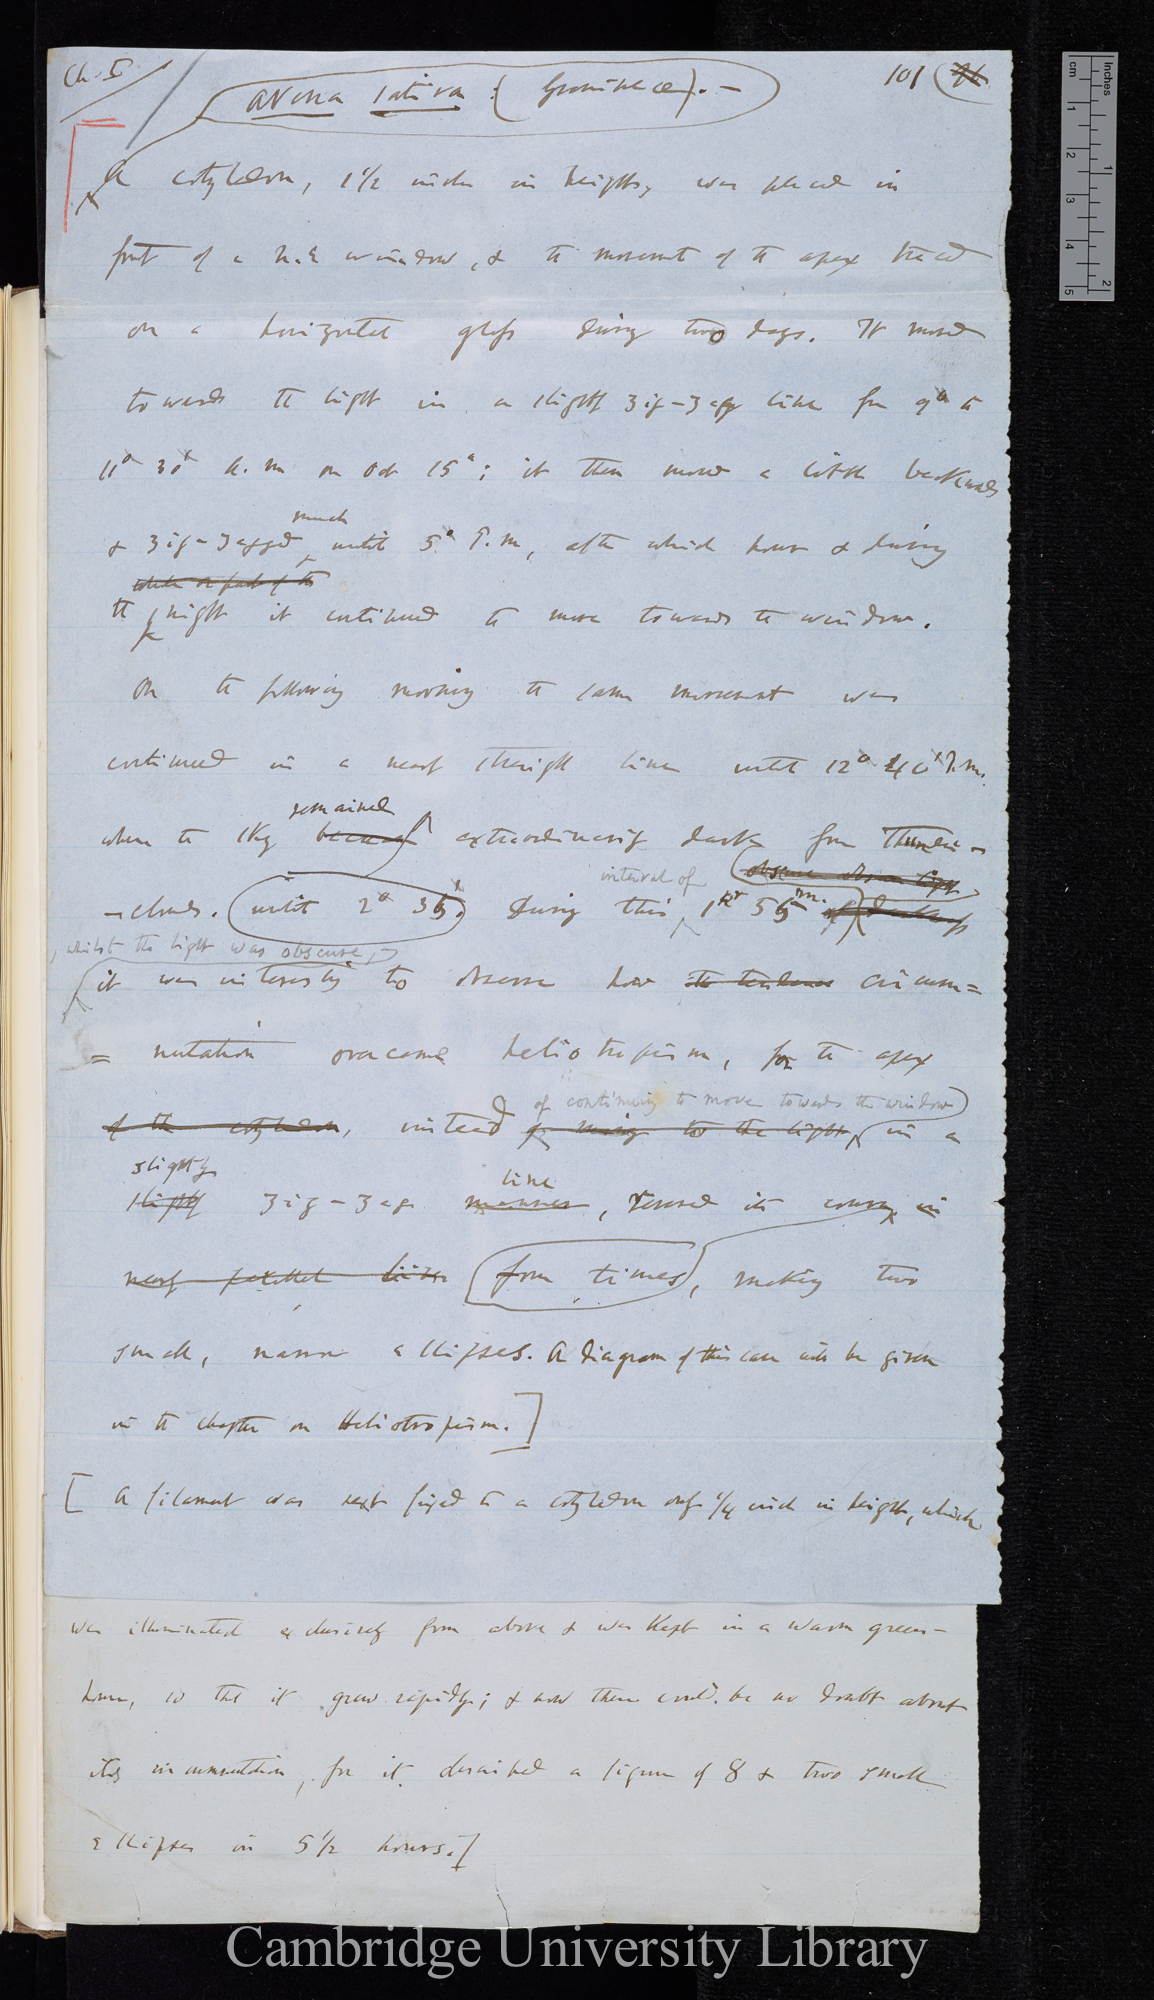 Ch. I
101 96
Avena sativa (Gramineæ). —
A cotyledon, 1 1/2 inches in height, was placed in
front of a N.E. window, & the movement of the apex traced
on a horizontal glass during two days. It moved
towards the light in a slightly zig-zag line from 9° to
11° 30' A.M on Oct 15th; it then moved a little backwards
much
& zig-zagged until 5° P.M, after which hour & during
while a part of the
the night it continued to move towards the window.
On the following morning the same movement was
continued in a nearly straight line until 12° 40' P.m.
remained
when the sky became extraordinarily dark from Thunder-
interval of obscure
-clouds. until 2° 35'. During this 1hr 55m. of darkness
, whilst the light was obscure,
it was interesting to observe how the tendency circum=
=nutation overcame heliotropism, for the apex
of continuing to move towards the window
of the cotyledon, instead of moving to the light, in a
slightly line
slightly zig-zag manner, reversed its course, in
nearly parallel lines four times, making two
small, narrow ellipses. A diagram of this case will be given
in the chapter on Heliotropism.]
[ A filament was next fixed to a cotyledon only 1/4 inch in height, which
was illuminated exclusively from above & was kept in a warm green-
house, so that it grew rapidly; & now there could. be no doubt about
its circumnutation, for it described a figure of 8 & two small
ellipses in 5 1/2 hours.]
inches
cm
1
2
3
4
5
1
2
Cambridge University Library